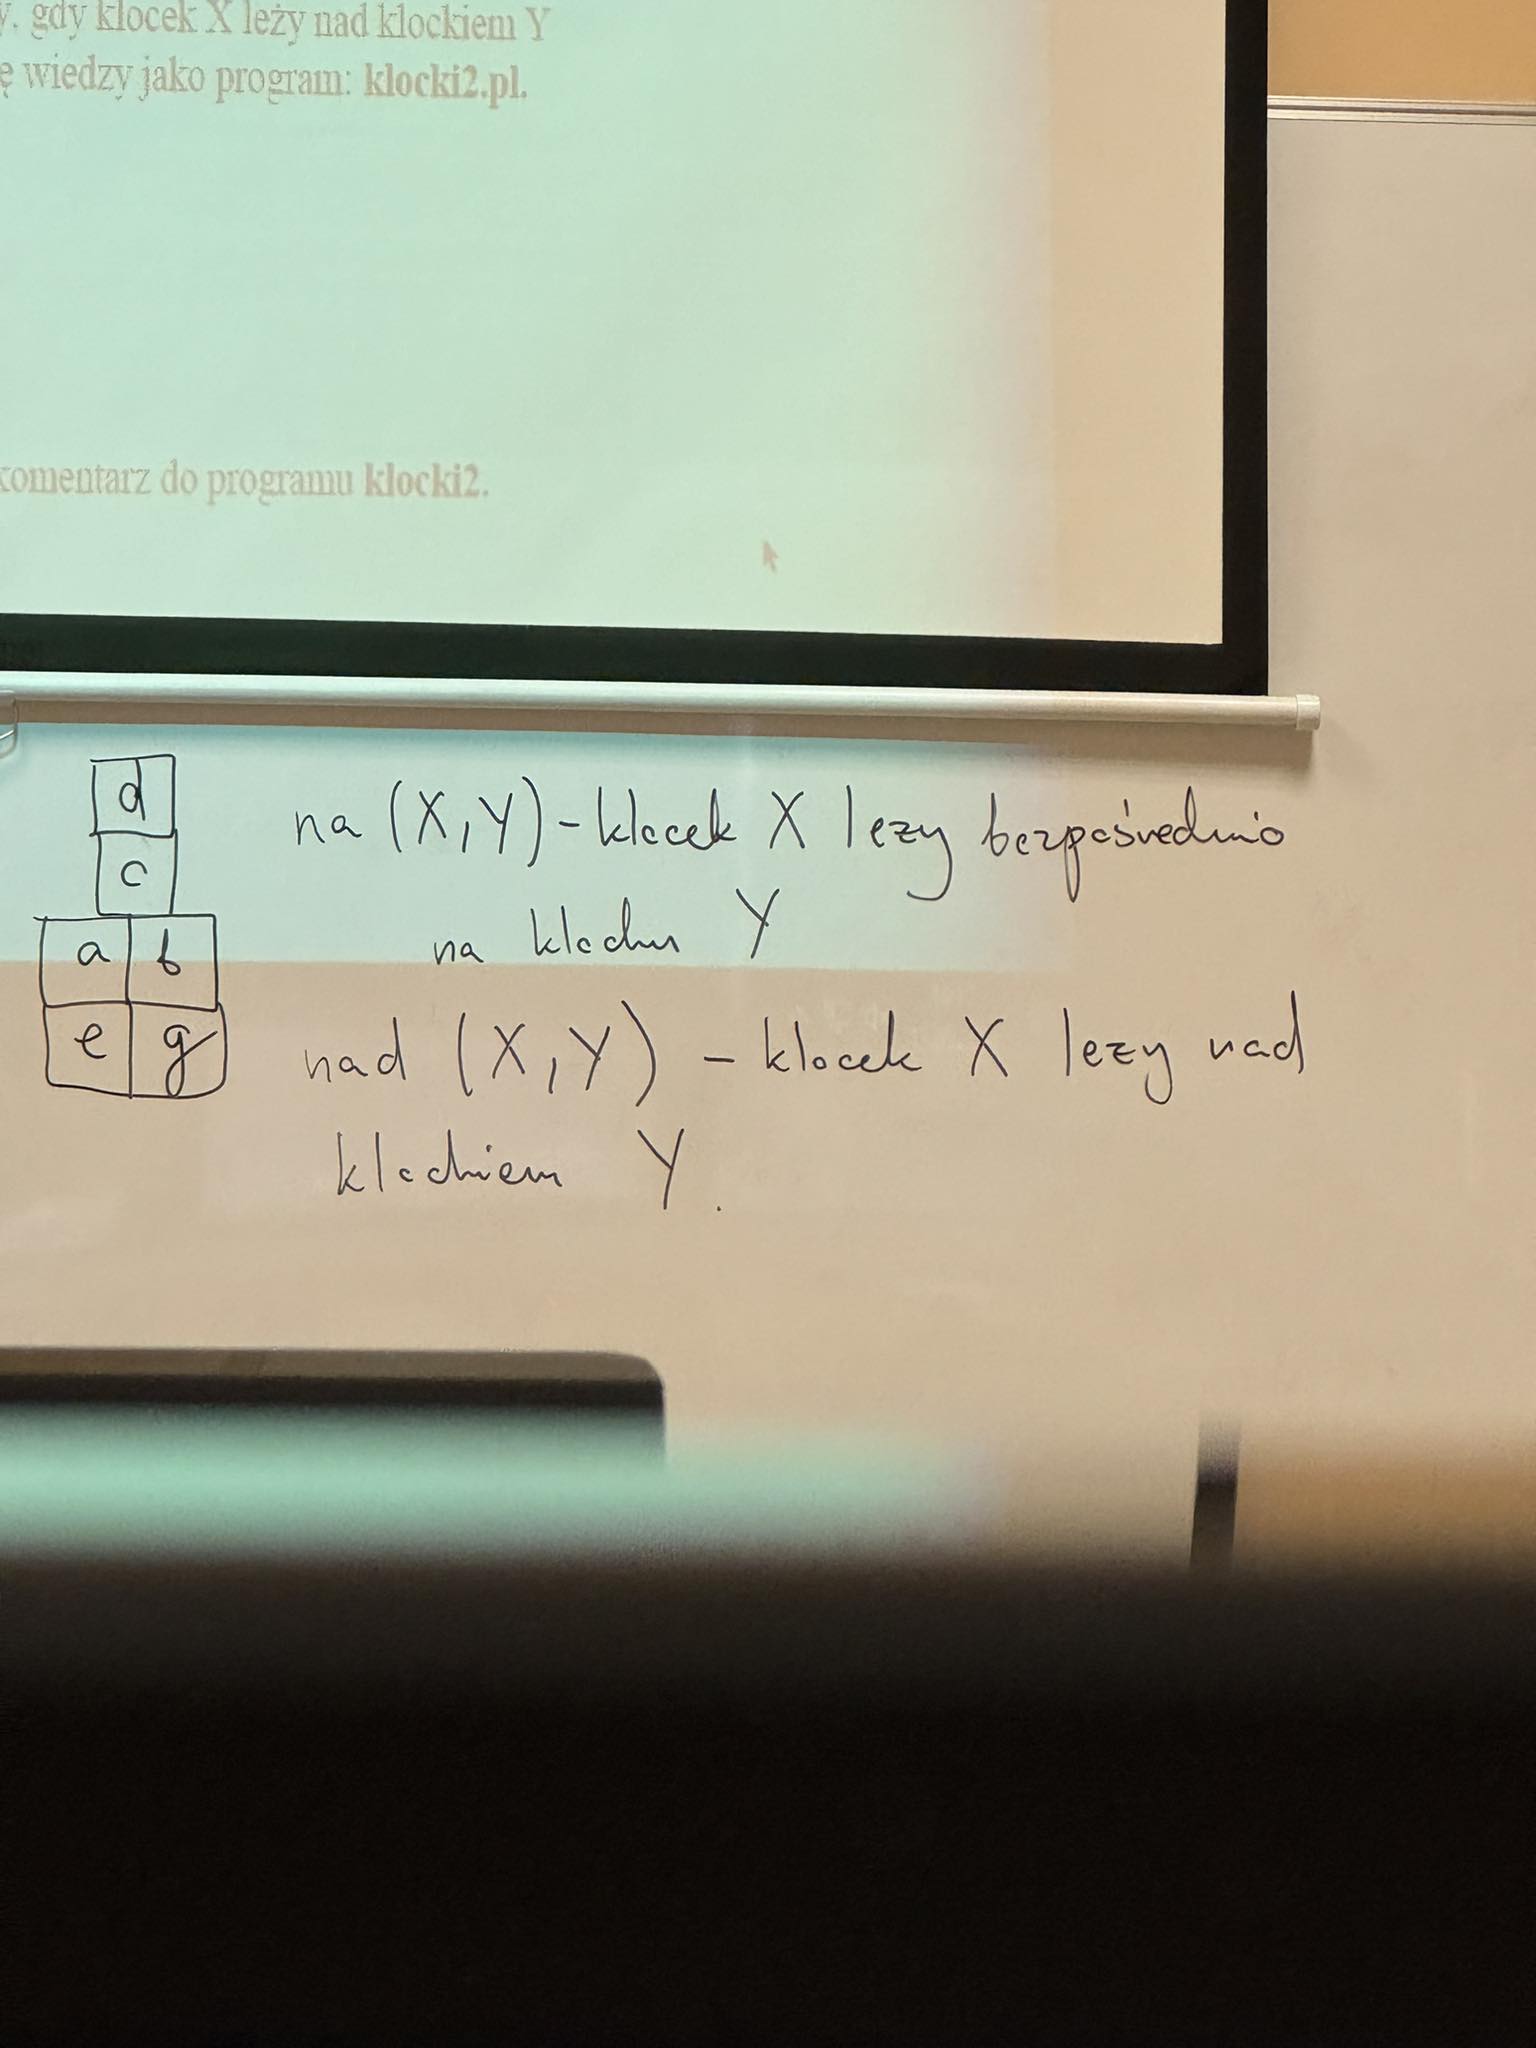 y. gdy klocek X leży nad klockiem Y
ę wiedzy jako program: klocki2.pl.
komentarz do programu klocki2.
d
c
a b
e g
na (X, Y) - klocek X lezy bezpośrednio
na klocku Y
nad (X, Y) - klocek X lezy nad
klockiem Y.